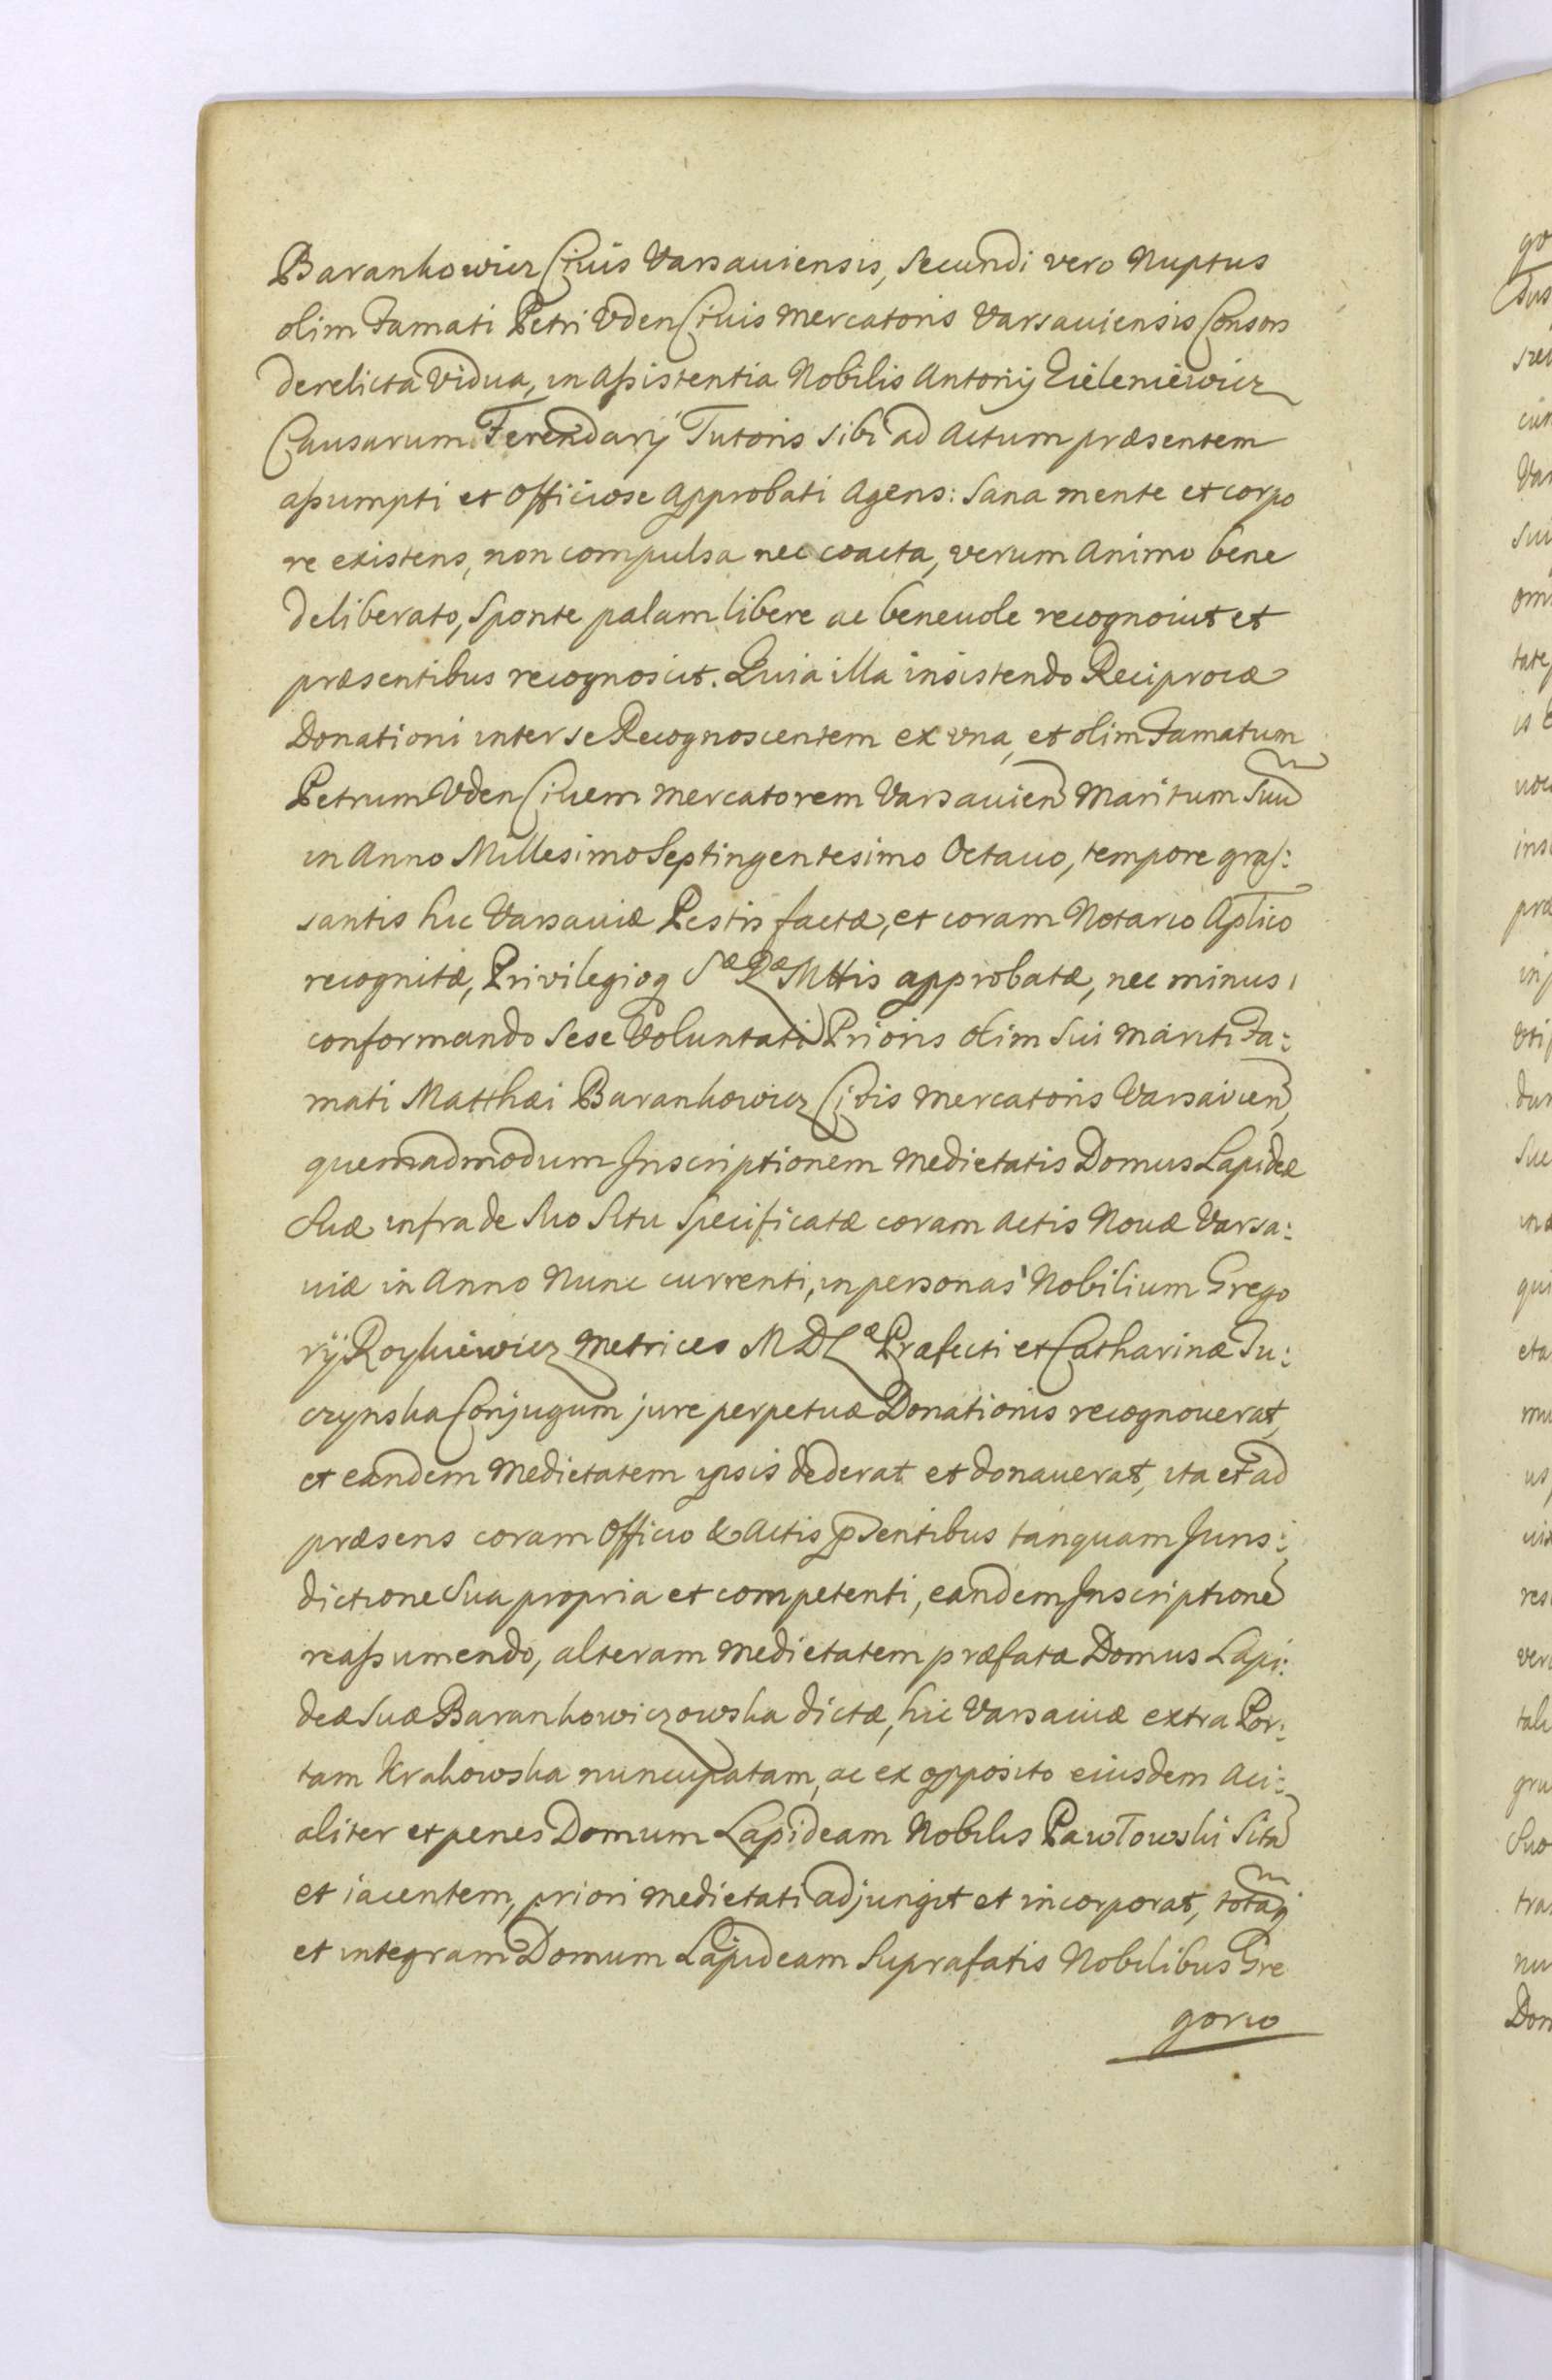 Barankowicz Ciuis Varsauiensis, Secundi vero Nuptus
olim Famati Petri Vden Ciuis Mercatoris Varsauiensis Consors
derelicta Vidua, in Aßistentia Nobilis Antonij Zieleniewicz
Causarum Ferendarij Tutoris sibi ad Actum præsentem
aßumpti et Officiose Approbati Agens: Sana mente et corpo
re existens, non compulsa nec coacta, verum Animo bene
deliberato, Sponte palam libere ac beneuole recognouit et
præsentibus recognoscit. Quia illa insistendo Reciprocæ
Donationi inter se Recognoscentem ex vna, et olim Famatum
Petrum Vden Ciuem Mercatorem Varsauien Maritum Suũ
in Anno Millesimo Septingentesimo Octauo, tempore gras:
santis hic Varsauiæ Pestis factæ, et coram Notario Aplico
recognitæ, Privilegioq Sæ Ræ Mttis approbatæ, nec minus
conformando Sese Voluntati Prioris olim Sui Mariti Fa:
mati Matthæi Barankowicz Civis Mercatoris Varsavien,
quemadmodum Inscriptionem Medietatis Domus Lapideæ
Suæ infra de Suo Situ Specificatæ coram Actis Nouæ Varsa:
uiæ in Anno Nunc currenti, in personas Nobilium Grego
rij Roykiewicz Metrices M D Læ Præfecti et Catharinæ Tu:
czynska Conjugum jure perpetuæ Donationis recognouerat,
et eandem Medietatem ipsis dederat et donauerat, ita et ad
præsens coram Officio & Actis p̄sentibus tanquam Juris:
dictione Sua propria et competenti, eandem Inscriptionē
reaßumendo, alteram Medietatem præfatæ Domus Lapi:
deæ Suæ Barankowiczowska dictæ, hic Varsauiæ extra Por:
tam Krakowska nuncupatam, ac ex opposito eiusdem Aci:
aliter et penes Domum Lapideam Nobilis Pawłowski Sitā
et iacentem, priori Medietati adjungit et incorporat, totamq
et integram Domum Lapideam Suprafatis Nobilibus Gre
gorio